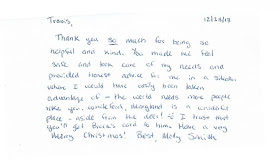 Travis, 12/23/13
Thank you so much for being so
helpful and kind. You made me feel
safe and took care of my needs and
provided honest advice to me in a situation
where I would have easily been taken
advantage of - the world needs more people
like you. Maryland is a wonderful
place - aside from the deer! I trust that
you'll get card to him. Have a very
Merry Christmas! Best, Smith